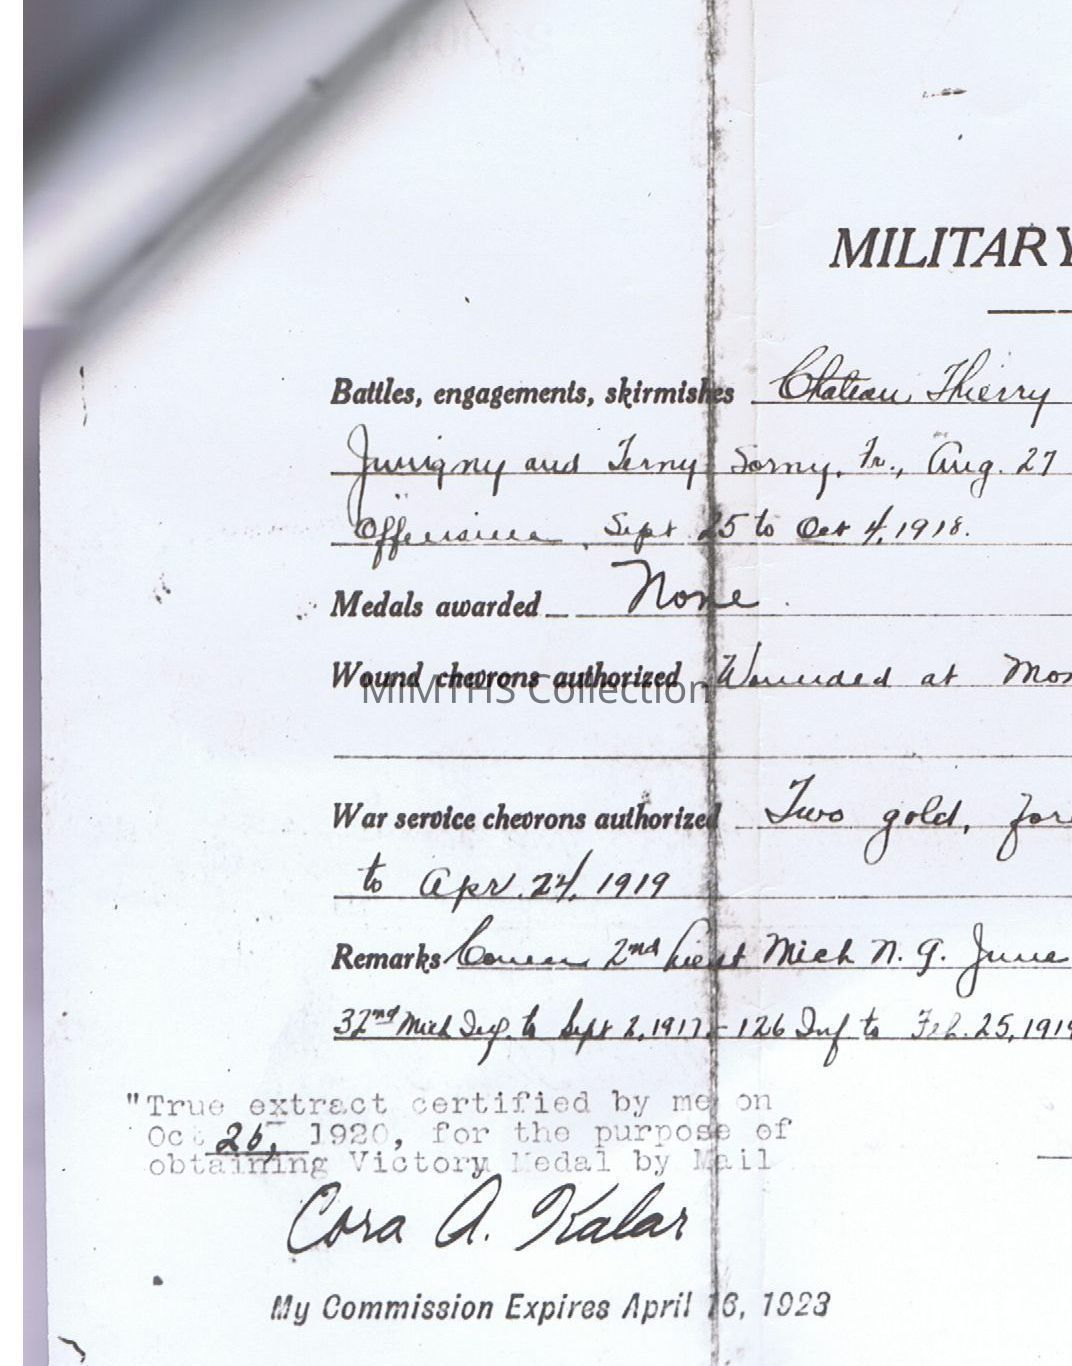 MILITARY
Battles, engagements, skirmishes Chateau Thierry
Juvigny and Terny Sorny, Fr., Aug. 27
Offensive, Sept 25 to Oct 4, 1918.
Medals awarded None.
Wound chevrons authorized Wounded at
MIMTHS Collection
War service chevrons authorized Two gold, for
to Apr. 24, 1919
Remarks 2nd Lieut Mich N. G. June
32nd Mich Inf. to Sept 2, 1917 - 126 Inf to Feb. 25, 1919
"True extract certified by me on
Oct 26, 1920, for the purpose of
obtaining Victory Medal by Mail
Cora A. Kalar
My Commission Expires April 16, 1923